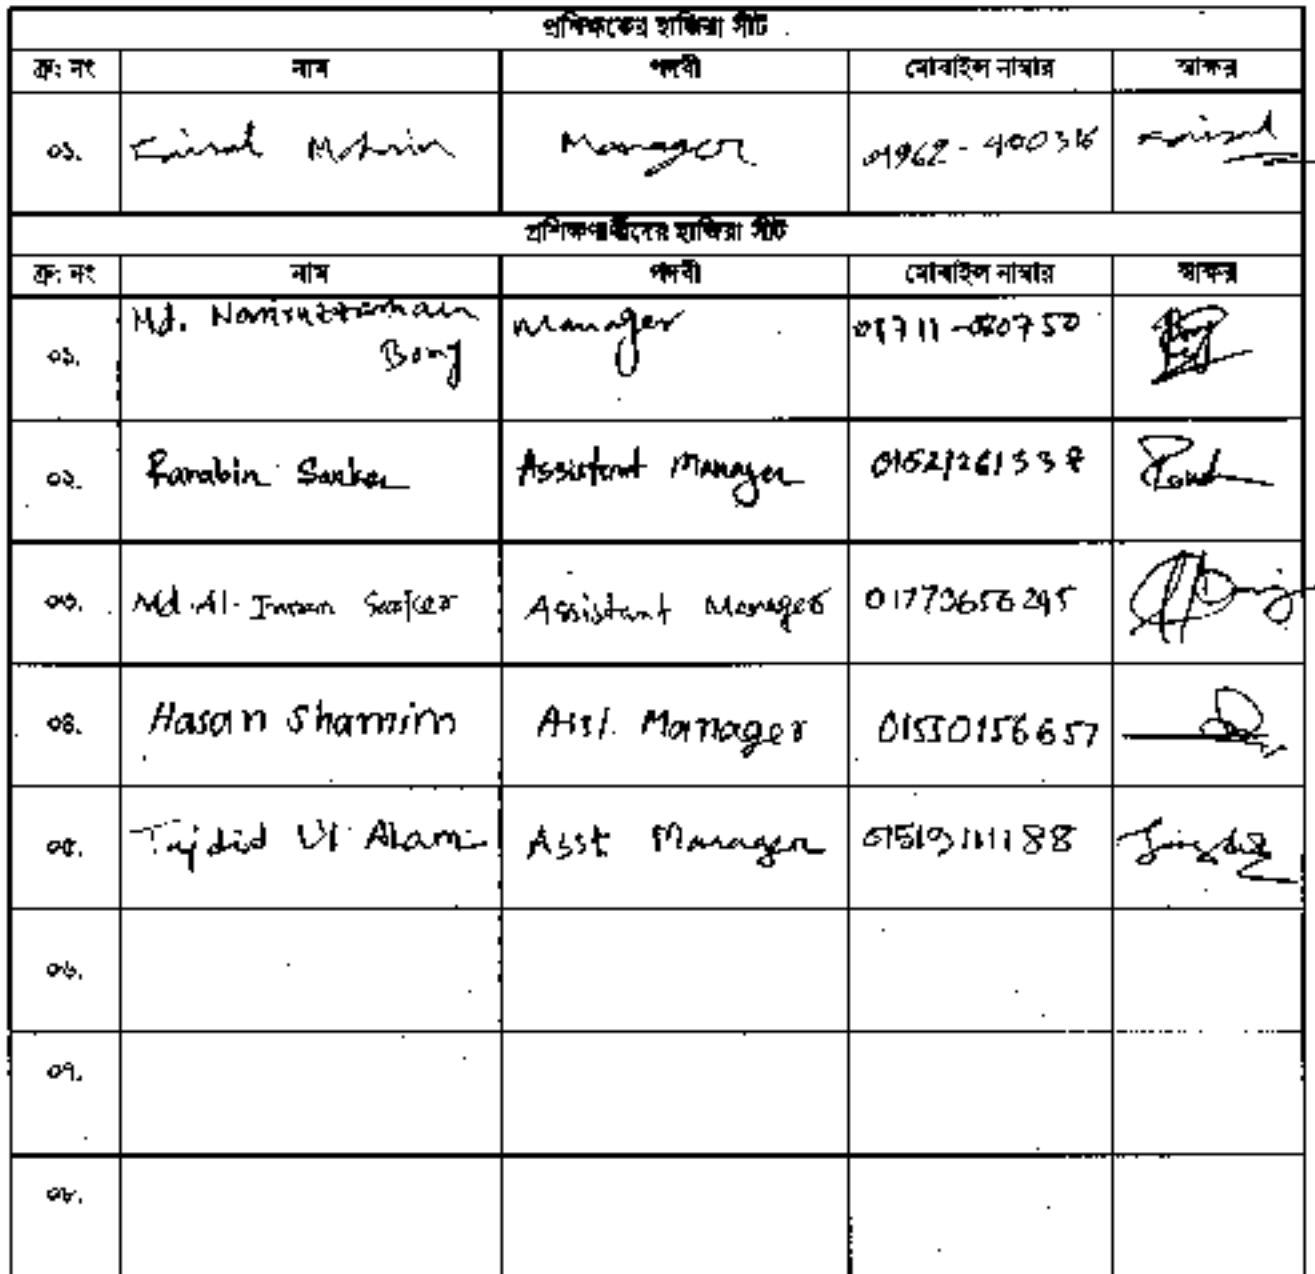 প্রশিক্ষকের হাজিরা সীট
ক্রঃ নং নাম পদবী মোবাইল নাম্বার স্বাক্ষর
০১. Faisal Mohsin Manager 01962-400316 Faisal
প্রশিক্ষণার্থীদের হাজিরা সীট
ক্রঃ নং নাম পদবী মোবাইল নাম্বার স্বাক্ষর
০১. Md. Manager
০২. Sarker Assistant Manager
০৩. Md. Al-Imran Sarker Assistant Manager 01773656295
০৪. Hasan Shamim Asst. Manager 01550156657
০৫. Tajdid Ul Alam Asst Manager
০৬.
০৭.
০৮.